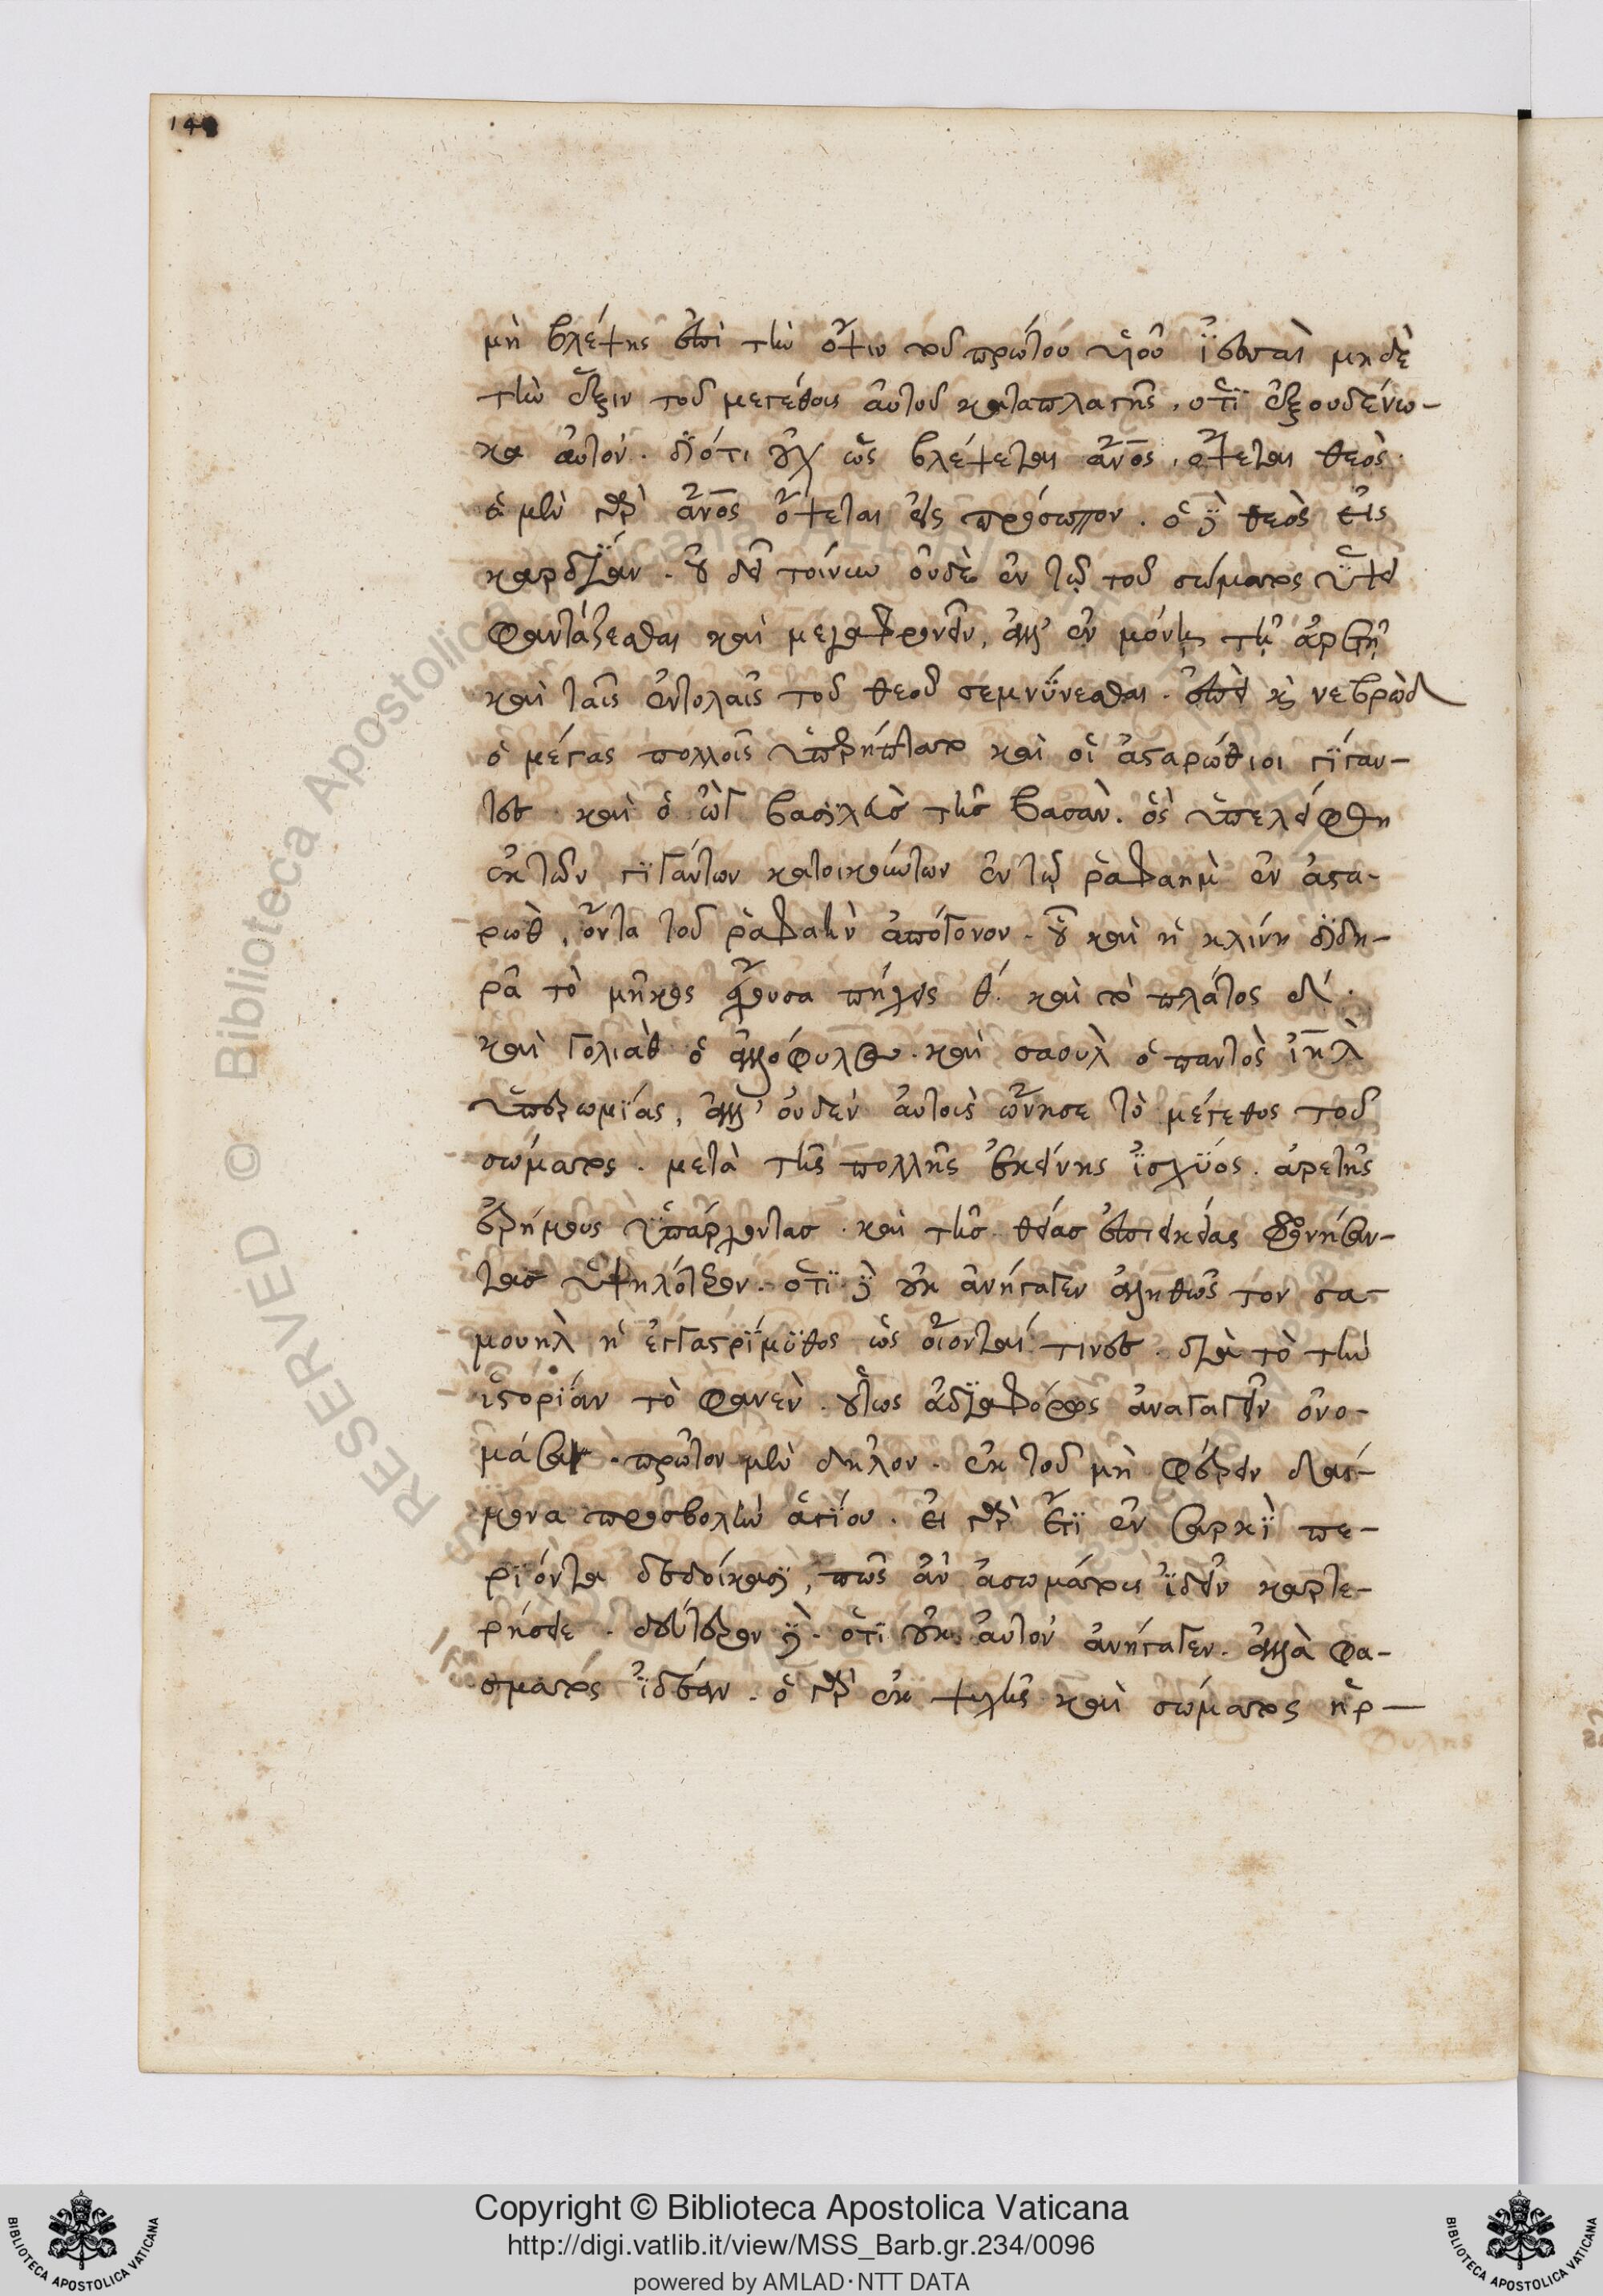 140
μὴ βλέψης ἐπὶ τὴν ὄψιν τοῦ πρώτου υἱοῦ ἰεσσαὶ μηδὲ
τὴν ἕξιν τοῦ μεγέθους αὐτοῦ καταπλαγῆς, ὅτι ἐξουδένω-
κα αὐτόν. διότι οὐχ ὡς βλέψεται ἄνος, ὄψεται θεός.
ὁ μὲν γὰρ ἄνος ὄψεται εἰς πρόσωπον. ὁ δὲ θεὸς εἰς
καρδίαν. οὐ δεῖ τοίνυν οὐδὲ ἐν τῷ τοῦ σώματος ὕψει
φαντάζεσθαι καὶ μεγαφρονεῖν, ἀλλ' ἐν μόνη τῇ ἀρετῇ
καὶ ταῖς ἐντολαῖς τοῦ θεοῦ σεμνύνεσθαι. ἐπεὶ καὶ νεβρὼδ
ὁ μέγας πολλοῖς ὑπερήπλατο καὶ οἱ ἀσαρώθιοι γίγαν-
τες καὶ ὁ ὢγ βασιλεὺς τῆς βασάν. ὃς ὑπελείφθη
ἐκ τῶν γιγάντων κατοικούντων ἐν τῷ ῥαφαημ ἐν ἀστα-
ρώθ, ὄντα τοῦ ῥαφαὴν ἀπόγονον. οὗ καὶ ἡ κλίνη σιδη-
ρᾶ τὸ μῆκος ἔχουσα πήχεις θ. καὶ τὸ πλάτος δ.
καὶ γολιὰθ ὁ ἀλλόφυλος. καὶ σαοὺλ ὁ παντὸς ιηλ
ὑπερωμίας, ἀλλ' οὐδὲν αὐτοῖς ὤνησε τὸ μέγεθος τοῦ
σώματος. μετὰ τῆς πολλῆς ἐκείνης ἰσχύος. ἀρετῆς
ἐρήμους ὑπάρχοντας. καὶ τῆς θείας ἐπιεικείας φρονήσαν-
τας ὑψηλότερον. ὅτι δὲ οὐκ ἀνήγαγεν ἀληθῶς τὸν σα-
μουὴλ ἡ ἐγγαστρίμυθος ὡς οἴονταί τινες. διὰ τὸ τὴν
ἱστορίαν τὸ φανὲν. οὕτως ἀδιαφόρως ἀναγαγεῖν ὀνο-
μάσαι. πρῶτον μὲν δῆλον. ἐκ τοῦ μὴ φέρειν δαί-
μονα προσβολὴν ἁγίου. εἰ γὰρ ἔτι ἐν σαρκὶ πε-
ριόντα δεδοίκασι, πῶς ἂν ἀσωμάτοις ἰδεῖν καρτε-
ρήσειε. δεύτερον δὲ. ὅτι οὐκ αὐτὸν ἀνήγαγεν. ἀλλὰ φα-
σματος ἰδέαν. ὁ γὰρ ἐκ ψυχῆς καὶ σώματος ἡρ-
φυλης
RESERVED © Biblioteca Apostolica
Copyright © Biblioteca Apostolica Vaticana
http://digi.vatlib.it/view/MSS_Barb.gr.234/0096
powered by AMLAD·NTT DATA
BIBLIOTECA APOSTOLICA VATICANA
BIBLIOTECA APOSTOLICA VATICANA